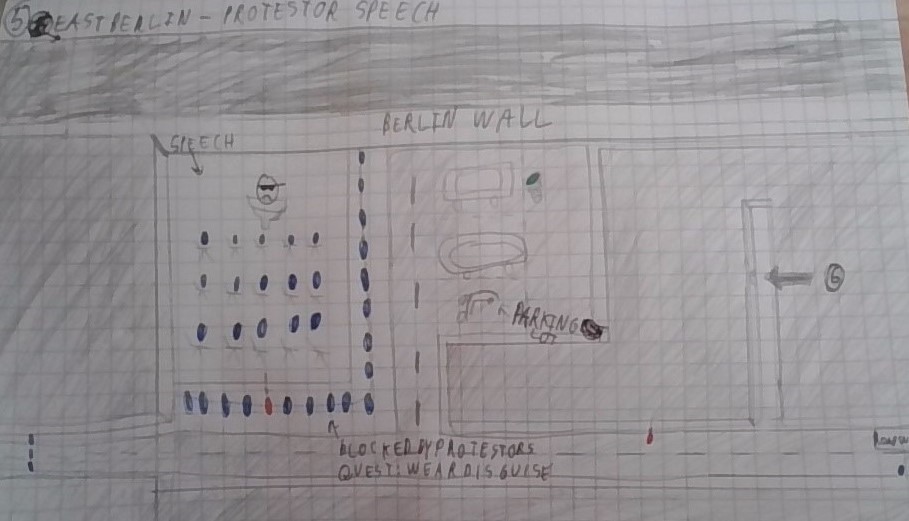 5 EAST BERLIN - PROTESTOR SPEECH
BERLIN WALL
SPEECH
6
PARKING
BLOCKED BY PROTESTORS
QUEST: WEAR DISGUISE